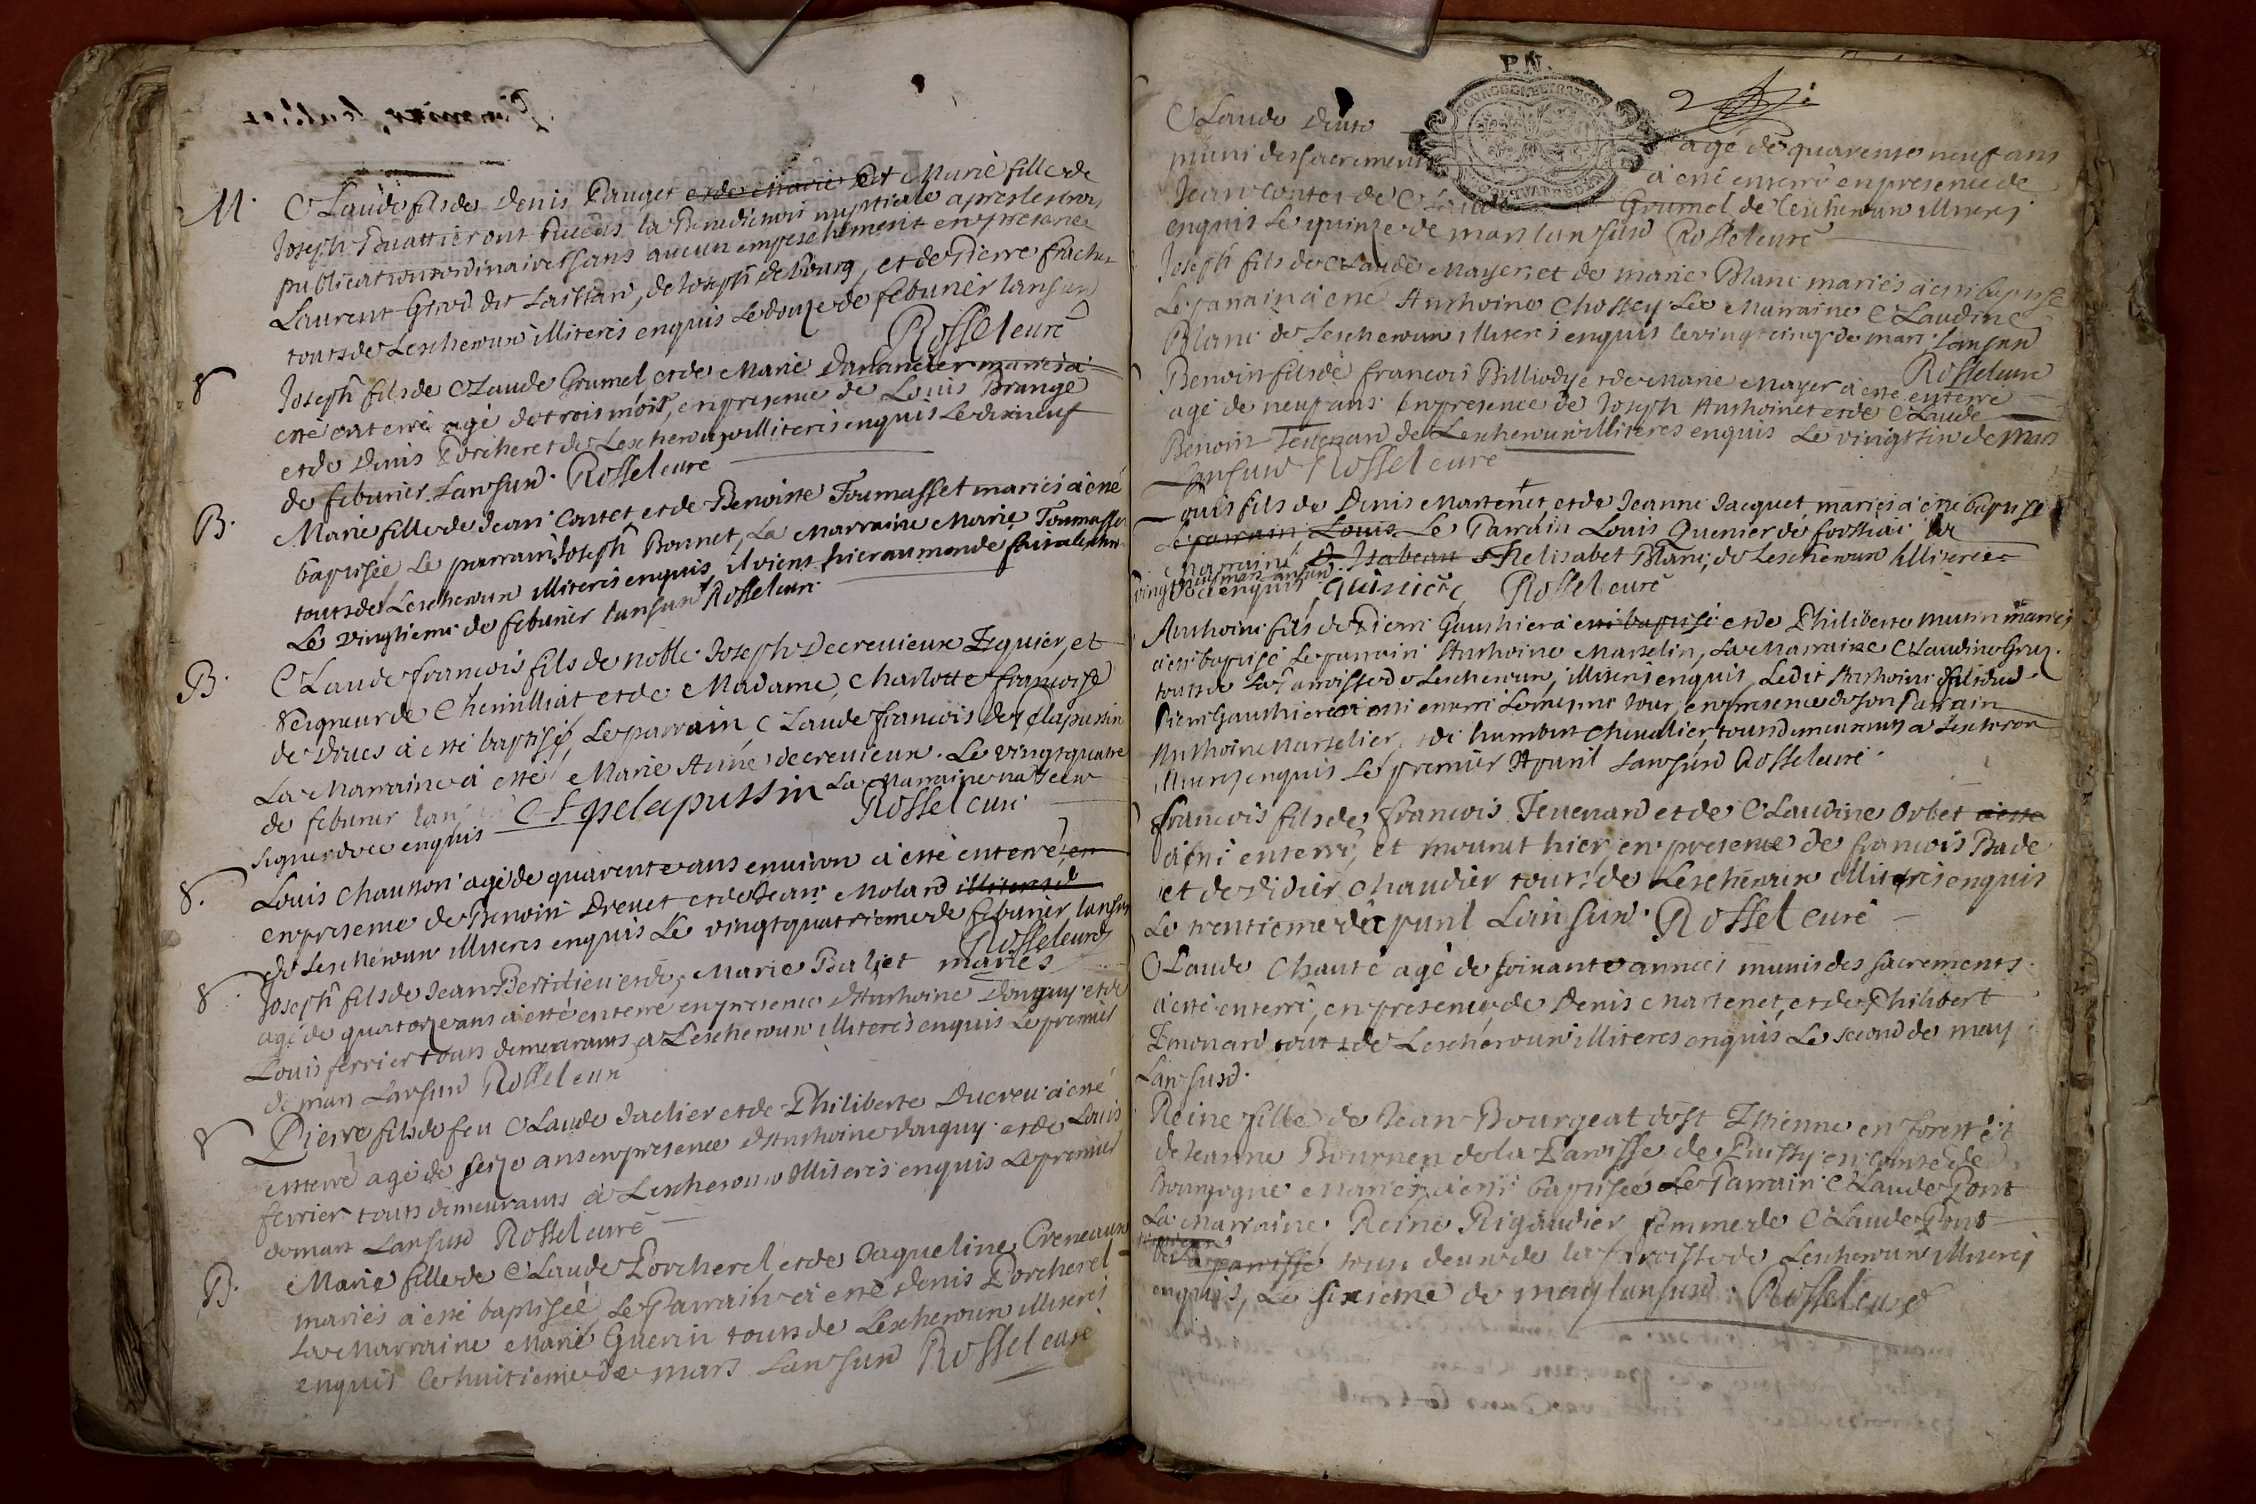 M. Claude fils de Denis Pauget et Marie fille de
Joseph Pouattier ont receus la Benediction nuptiale apres les trois
publications ordinaires sans aucun empeschement en presence
Laurent Girod dit Laillard, de Joseph de bourg, et de Pierre
touts de Lescheroux illiterés enquis Le douze de feburier lansusd
Rossel curé
8 Joseph fils de Claude Grumel et de Marie Danancier mariés a
esté enterré agé de trois mois, en presence de Louis Brange
et de Denis Porcheret de Lescheroux illiterés enquis Le dixneuf
de feburier Lansusd. Rossel curé
B. Marie fille de Jean Contet et de Benoiste Toumasset mariés a esté
baptisée Le parrain Joseph Bonnet, La Marraine Marie Toumasset
touts de Lescheroux illiterés enquis, il vient hier au monde
Le vingtieme de feburier lansusd Rossel curé
B. Claude francois fils de noble Joseph Decrevieux Equier, et
seigneur de Chemilliat et de Madame Charlotte francoise
de Drues a esté baptisé, Le parrain Claude francois de pelapussin
La Marraine a esté Marie Anne decrevieux. Le vingtquatre
de feburier lan CF pelapussin La Marraine na sceu
signer de ce enquis Rossel curé
8. Louis Chausson agé de quarente ans enuiron a esté enterré, en
en presence de Benoist Dreuet et de Jean Molard
de Lescheroux illiterés enquis Le vingtquatrieme de feburier lansusd
Rossel curé
8 Joseph fils de Jean Bertilieu et de Marie Baljet mariés
agé de quatorze ans a esté enterré en presence dAnthoine Donguy et de
Louis ferrier touts demeurants a Lescheroux illiterés enquis Le premier
de mars Lansusd Rossel curé
8 Pierre fils de feu Claude Jaclier et de Philiberte Ducreu a esté
enterré agé de seize ans en presence dAnthoine donguy et de Louis
ferrier touts demeurants a Lescheroux illiterés enquis Le premier
de mars Lansusd Rossel curé
B. Marie fille de Claude Porcherel et de Jaqueline Creneaux
mariés a esté baptisée Le Parrain a esté denis Porcherel
La Marraine Marie Guerin touts de Lescheroux illiterés
enquis Le huitieme de mars Lansusd Rossel curé
P.N.
Claude agé de quarente neuf ans
muni des sacrements a esté enterré en presence de
Jean Contet de Claude Grumel de lescheroux illiterés
enquis Le quinze de mars lansusd Rossel curé
Joseph fils de Claude Mayer et de marie Blanc mariés a esté baptisé
Le parrain a esté Anthoine Chossey La Marraine Claudine
Blanc de Lescheroux illiterés enquis le vingtcinq de mars lansusd
Rossel curé
Benoist fils de francois Billiody et de Marie Mayer a esté enterré
agé de neuf ans en presence de Joseph Anthoinet et de Claude
Benoist Teuenard de Lescheroux illiteres enquis Le vingtsix de mars
Lansusd Rossel curé
Louis fils de Denis Martenet et de Jeanne Jacquet mariés a esté baptisé
Le parrain Louis Le Parrain Louis Quenier de La
Marraine Isabeau Elisabet Blanc, de Lescheroux illiterés
vingt enquis Quinier Rossel curé
Anthoine fils de Pierre Gauthier a esté baptisé et de Philiberte mutin mariés
a esté baptisé Le parrain Anthoine Marselin, La Marraine Claudine Gruz.
touts de La Paroisse de Lescheroux, illiterés enquis, Ledit Anthoine fils dud
Pierre Gauthier a esté enterré Le mesme Jour, en presence de son Parrain
Anthoine Marselier, et de humbert Chevalier touts demeurants a Lescheroux
illiterés enquis Le premier Apuril Lansusd Rossel curé
francois fils de francois Teuenard et de Claudine Orbet a esté
a esté enterré, et mourut hier, en presence de francois Bade
et de Didier Chaudier touts de Lescheroux illiterés enquis
Le trentieme dapuril Lansusd. Rossel curé
Claude Chauté agé de soixante années munis des sacrements
a esté enterré, en presence de Denis Martenet, et de Philibert
Emonard touts de Lescheroux illiteres enquis Le second de may
Lansusd.
Reine fille de Jean Bourgeat de St Etienne en forest et
de Jeanne Bournen de la Paroisse de en Comté de
Bourgogne Mariés, a esté baptisée Le Parrain Claude Pont
La marraine, Reine Rigaudier femme de Claude Pont
la paroisse touts deux de la paroisse de Lescheroux illiterés
enquis, Le sixieme de may lansusd. Rossel curé